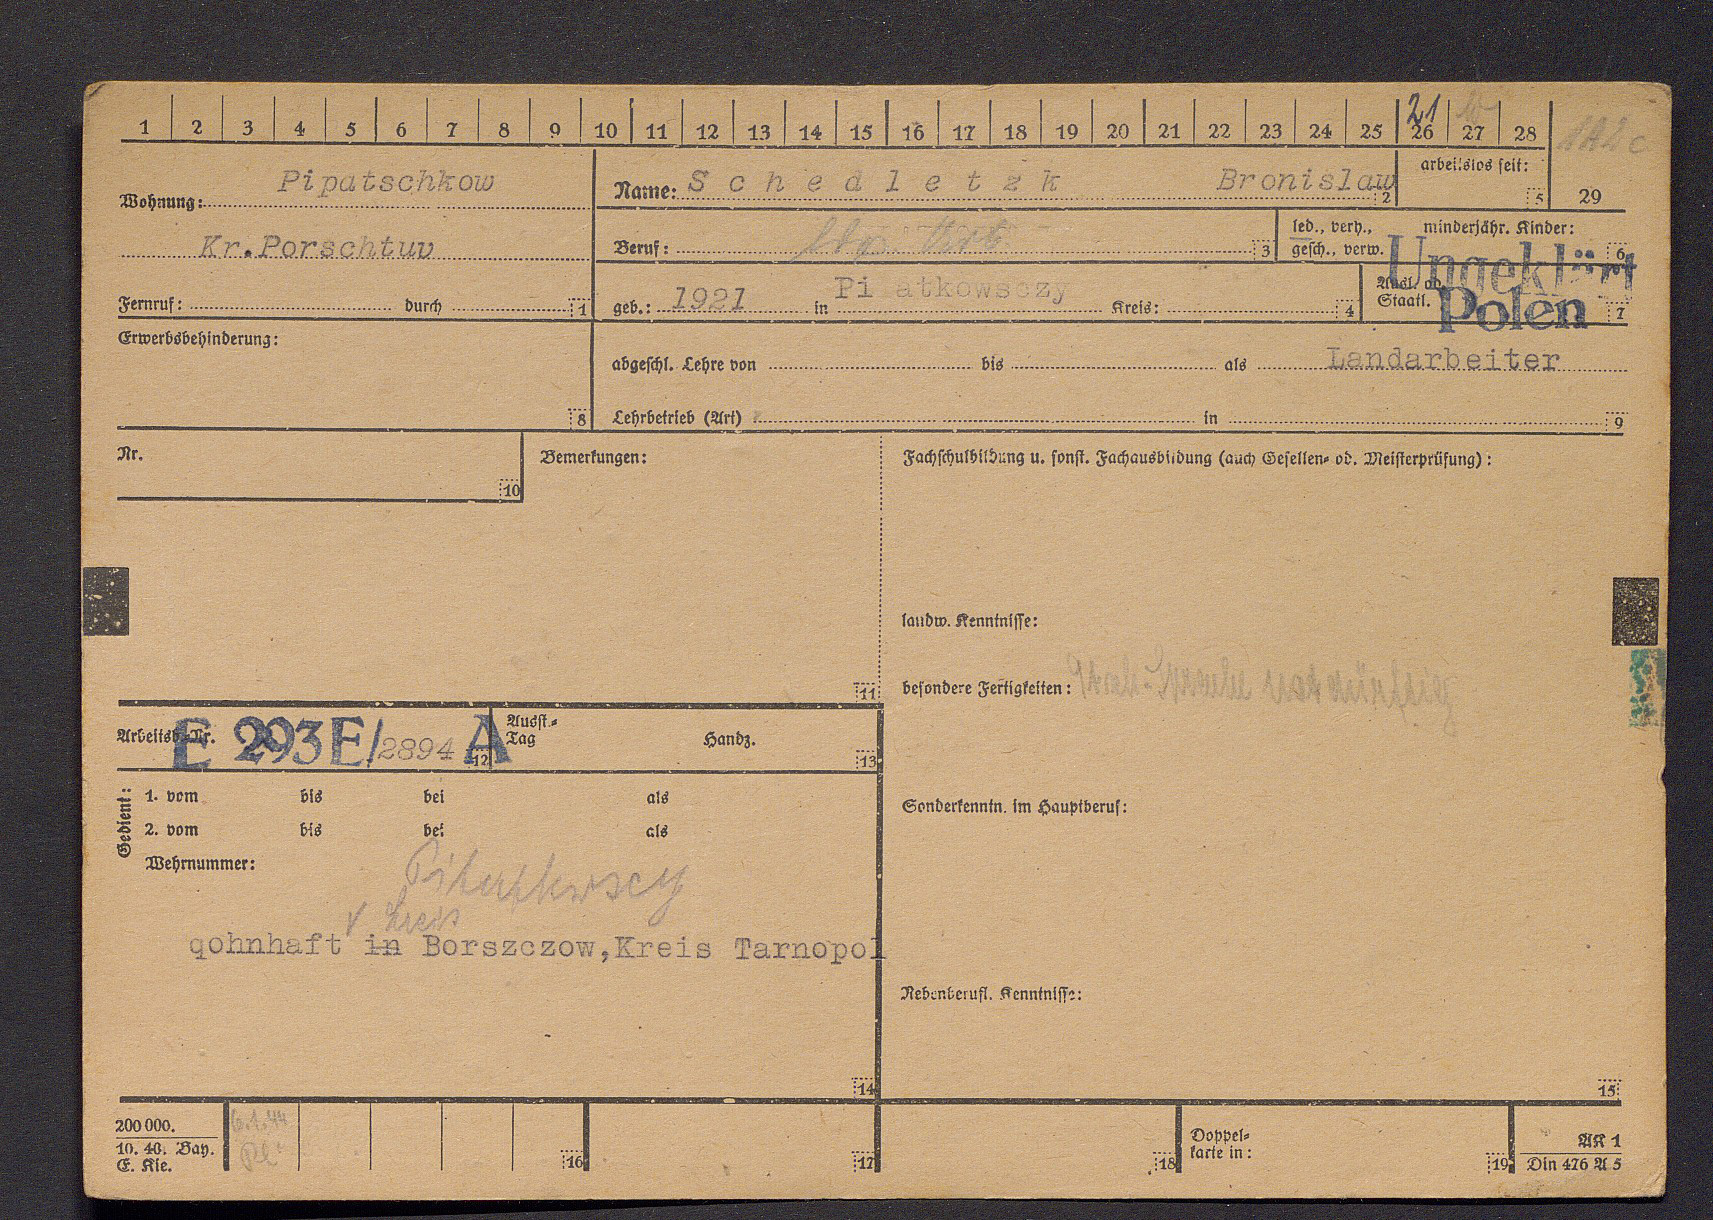 1 2 3 4 5 6 7 8 9 10 11 12 13 14 15 16 17 18 19 20 21 22 23 24 25 26 27 28
21
1A2c
Wohnung: Pipatschkow
Kr.Porschtuv
Fernruf: durch 1
Name: Schedletzk Bronislaw 2
arbeitslos seit: 5
29
Beruf: 3
led., verh., gesch., verw.
minderjähr. Kinder: 6
Ungeklärt
geb.: 1921 in Pi atkowsczy Kreis: 4
Ausl. od. Staatl. Polen 7
Erwerbsbehinderung: 8
abgeschl. Lehre von bis als Landarbeiter
Lehrbetrieb (Art) in 9
Nr. 10
Bemerkungen: 11
Fachschulbildung u. sonst. Fachausbildung (auch Gesellen- od. Meisterprüfung):
landw. Kenntnisse:
besondere Fertigkeiten:
Arbeitsb.-Nr. E 293E/2894 A 12
Ausst.-Tag Handz. 13
Gedient: 1. vom bis bei als
2. vom bis bei als
Wehrnummer:
Kreis
qohnhaft in Borszczow,Kreis Tarnopol
14
Sonderkenntn. im Hauptberuf:
Nebenberufl. Kenntnisse:
15
200 000.
10. 40. Bay.
E. Kie.
6.1.44
16
17
18
Doppelkarte in: 19
AK 1
Din 476 A 5